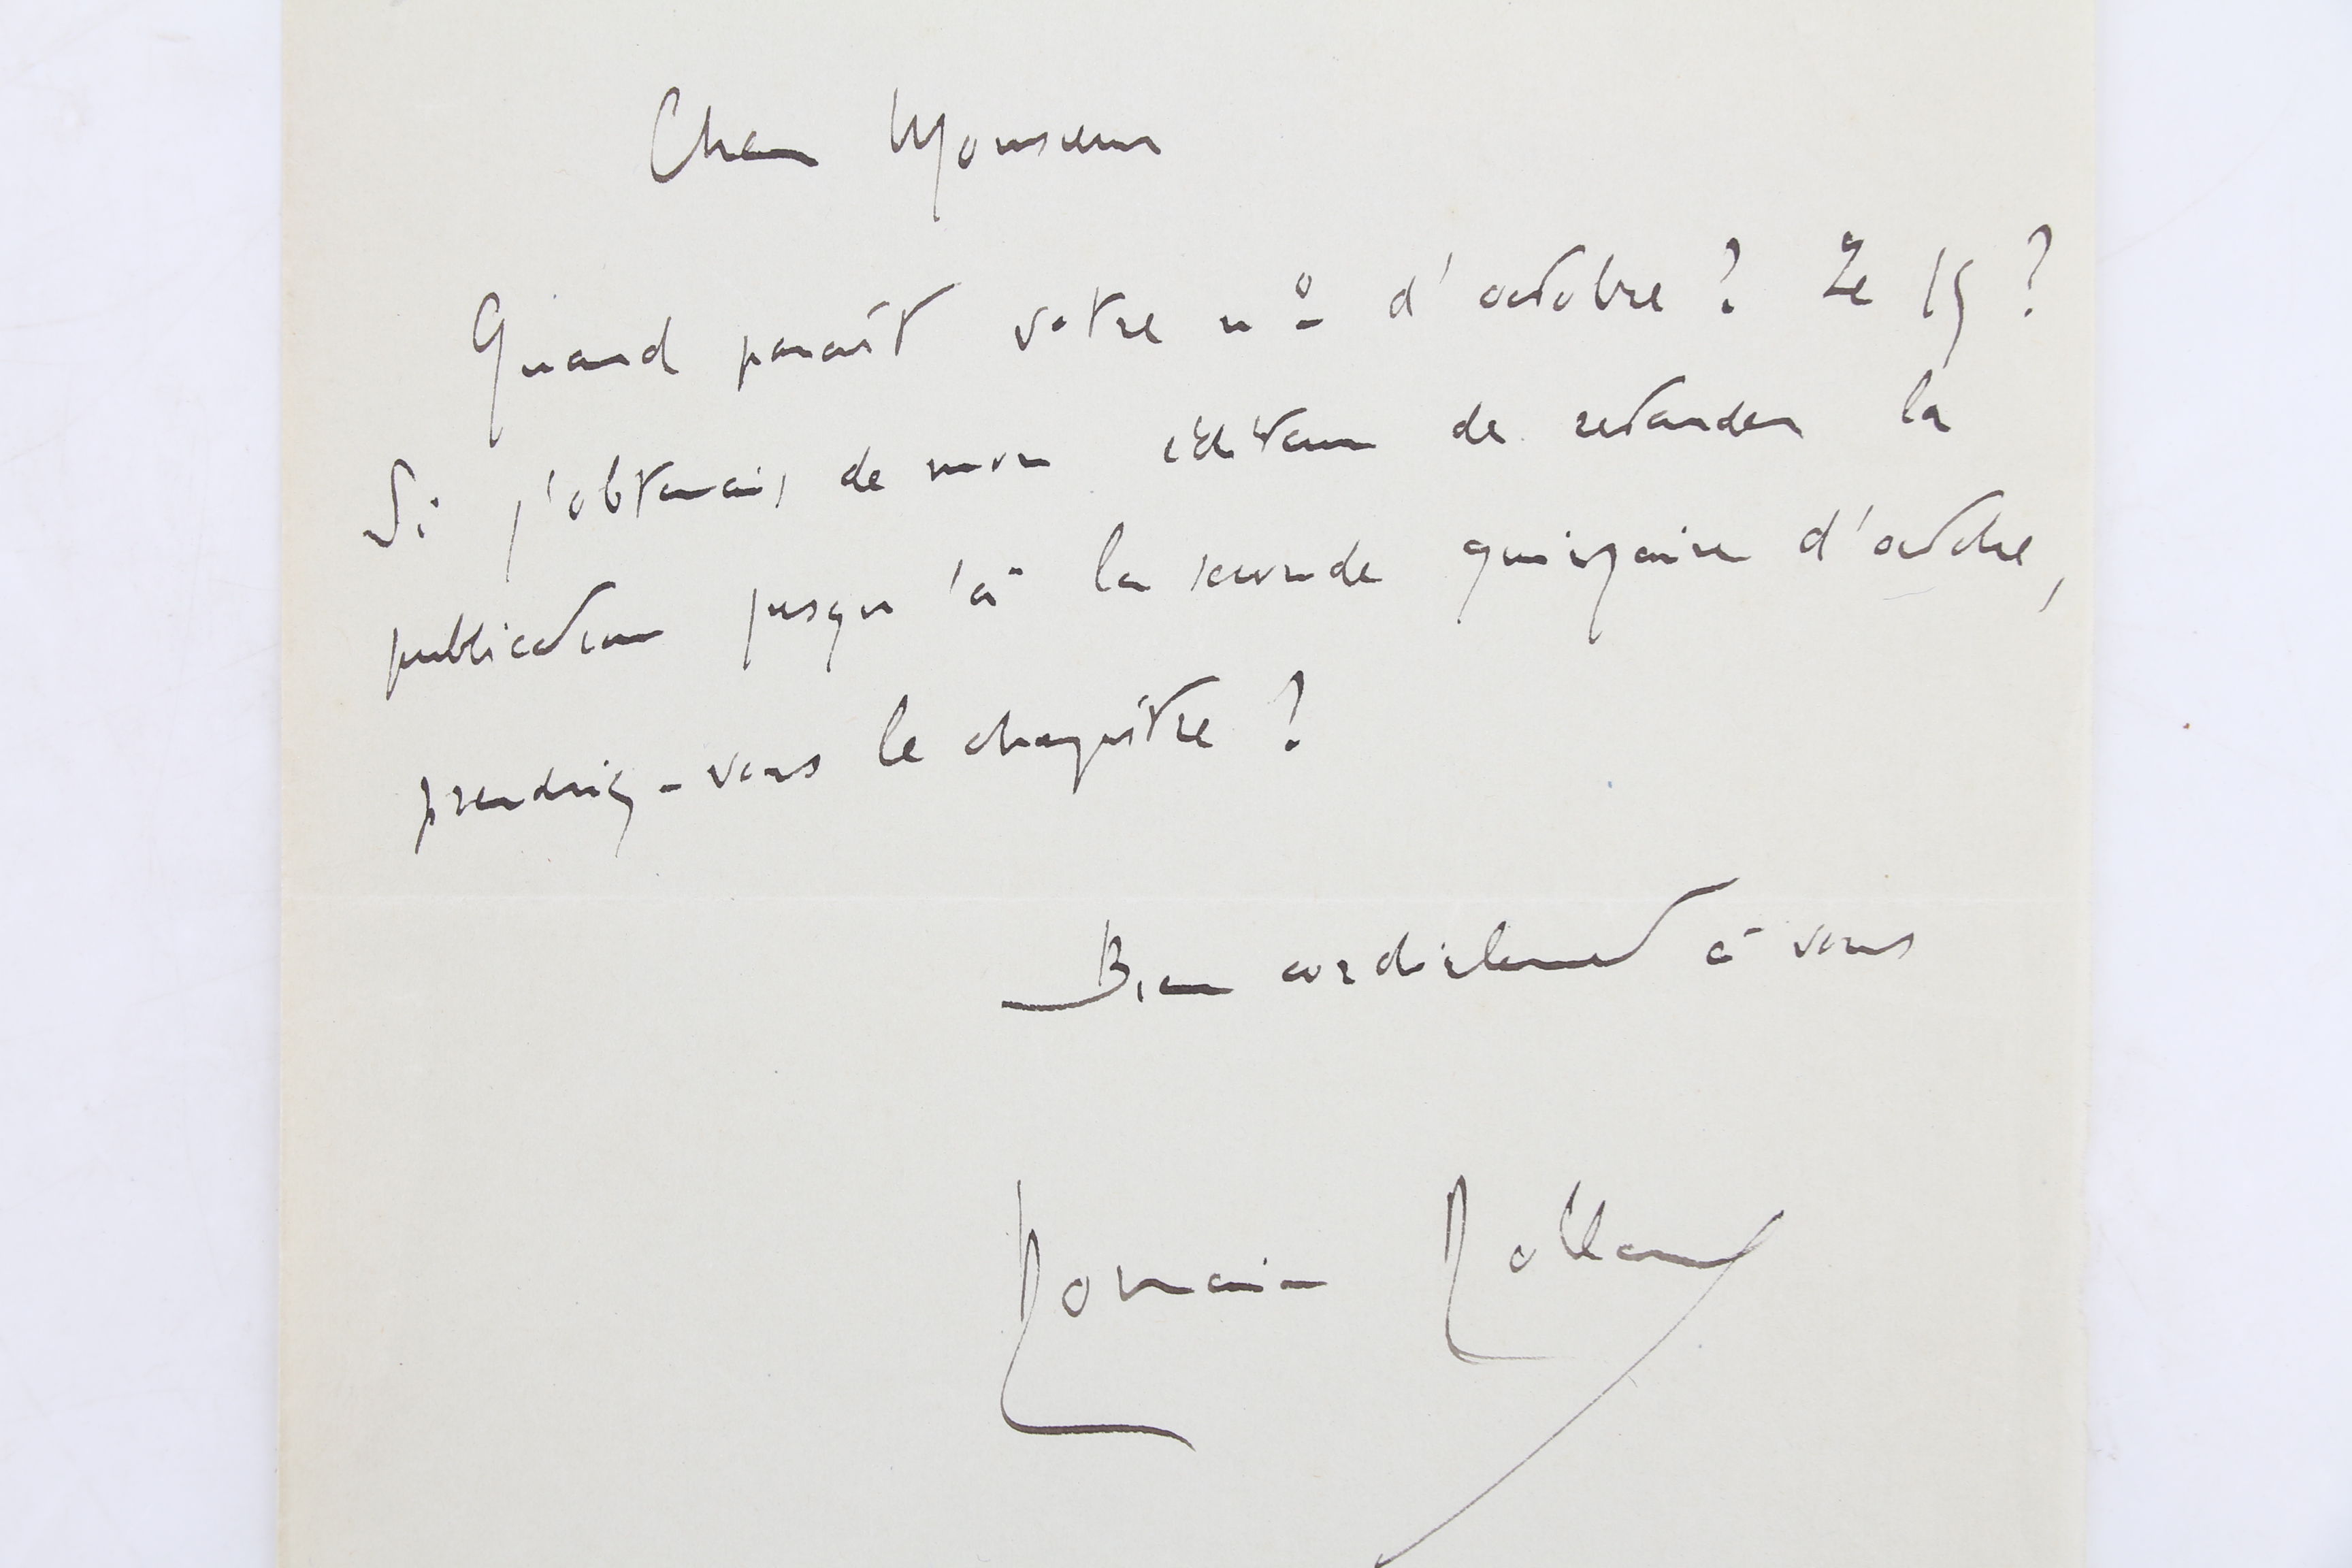 Cher Monsieur
Quand paraît votre nº d'octobre ? Le 15 ?
Si j'obtenais de mon éditeur de retarder la
publication jusqu'à la seconde quinzaine d'octobre,
prendriez-vous le chapitre ?
Bien cordialement à vous
Romain Rolland